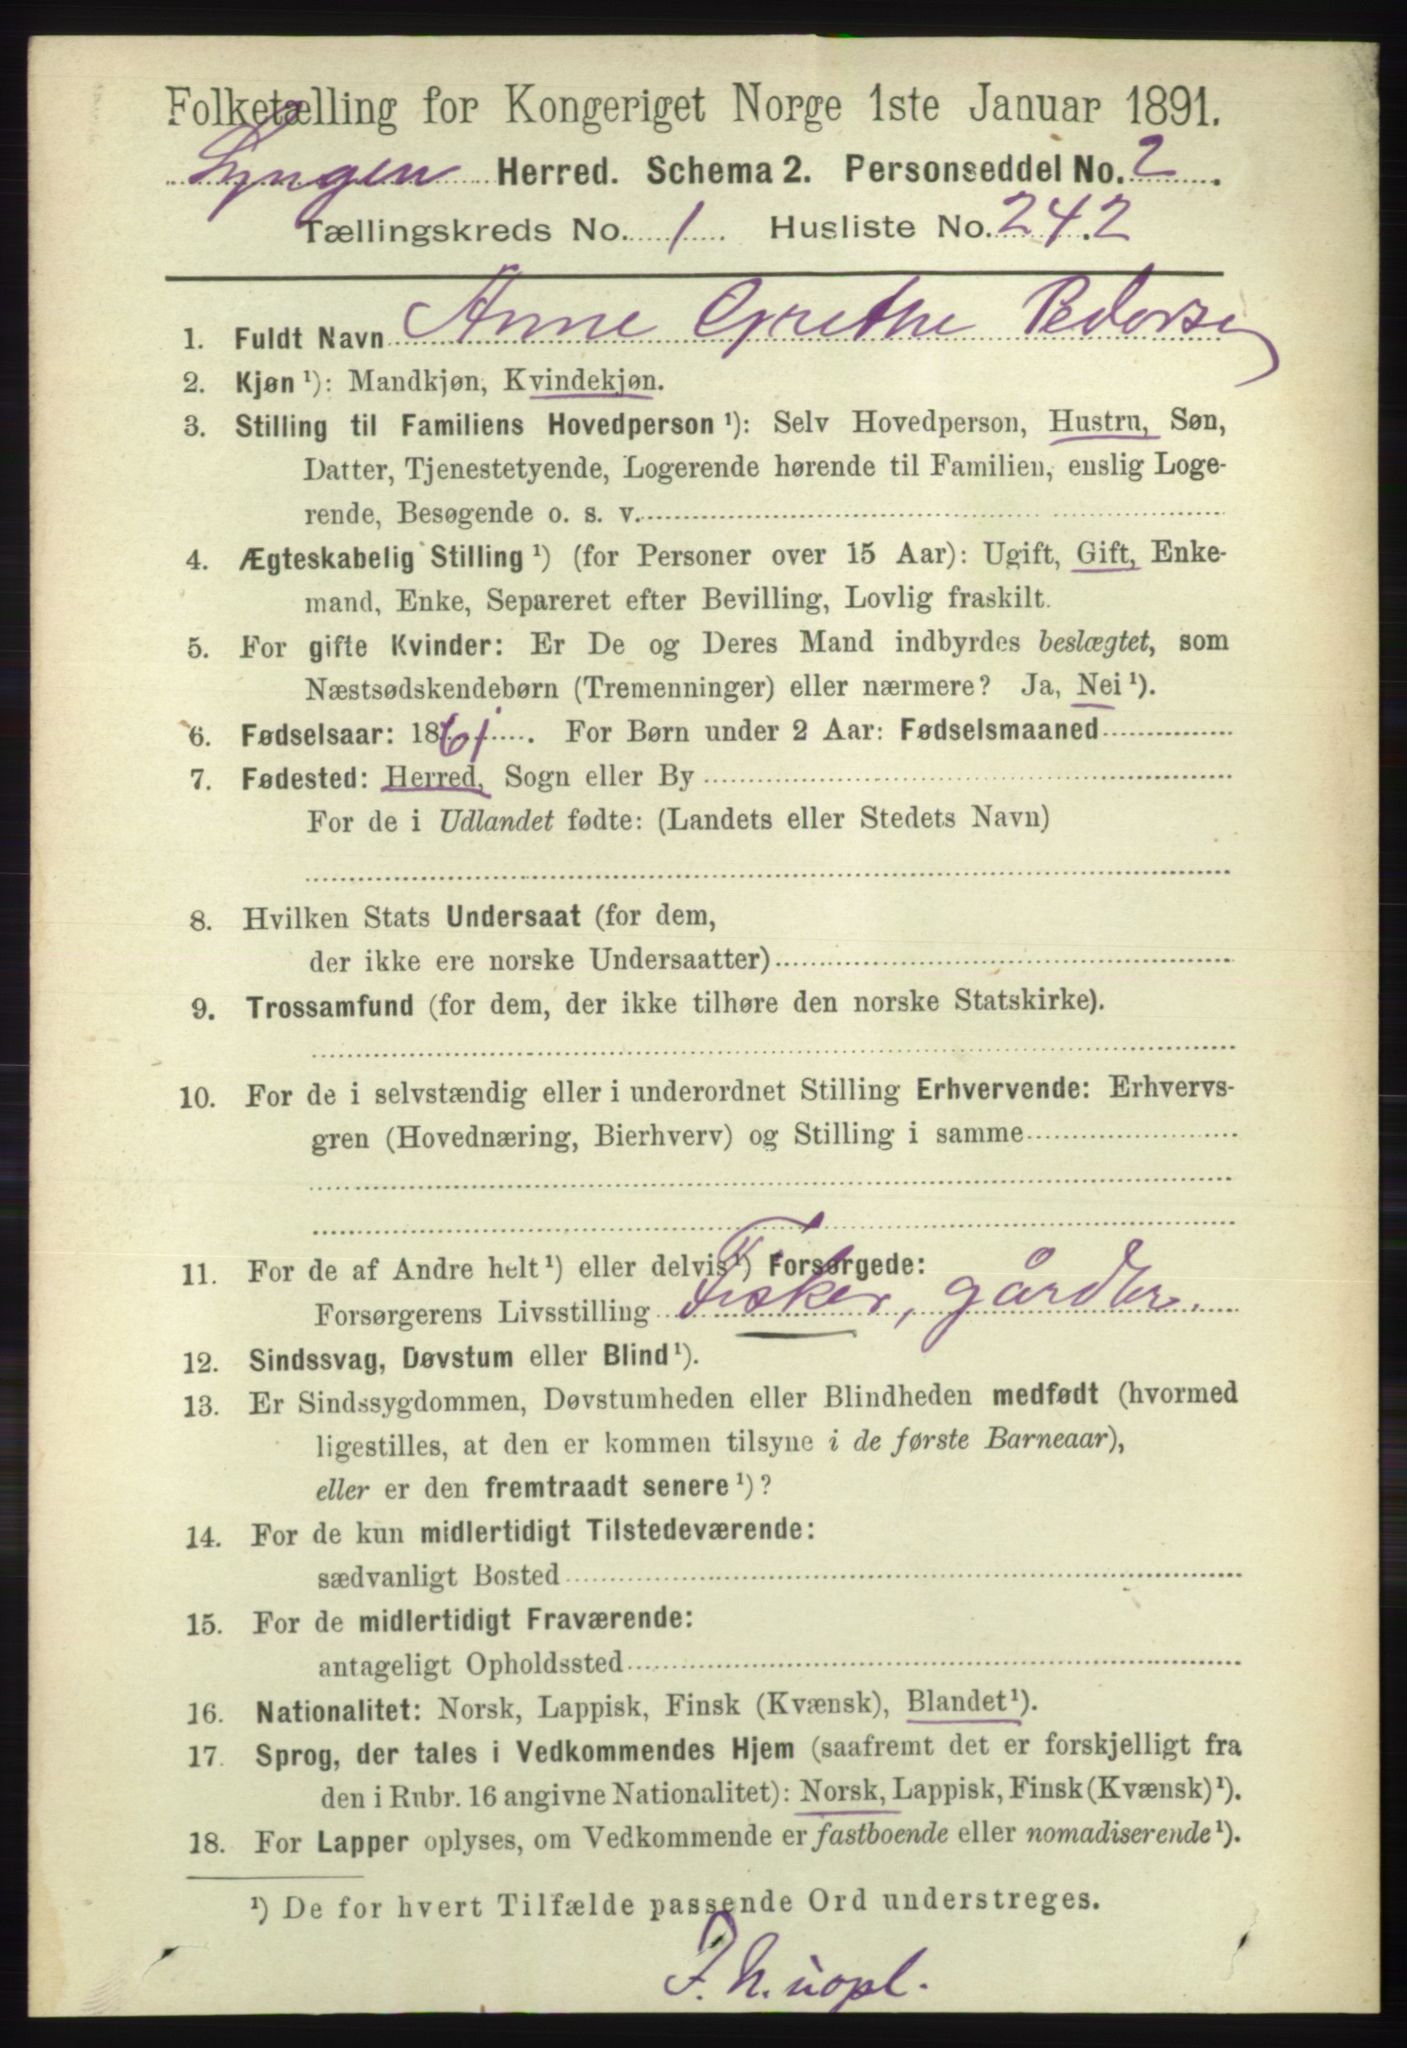 Folketælling for Kongeriget Norge 1ste Januar 1891.
Lyngen Herred. Schema 2. Personseddel No. 2
Tællingskreds No. 1 Husliste No. 242
1. Fuldt Navn Anne Grethe Pedersen
2. Kjøn ¹): Mandkjøn, Kvindekjøn.
3. Stilling til Familiens Hovedperson ¹): Selv Hovedperson, Hustru, Søn,
Datter, Tjenestetyende, Logerende hørende til Familien, enslig Loge-
rende, Besøgende o. s. v.
4. Ægteskabelig Stilling ¹) (for Personer over 15 Aar): Ugift, Gift, Enke-
mand, Enke, Separeret efter Bevilling, Lovlig fraskilt.
5. For gifte Kvinder: Er De og Deres Mand indbyrdes beslægtet, som
Næstsødskendebørn (Tremenninger) eller nærmere? Ja, Nei ¹).
6. Fødselsaar: 1861. For Børn under 2 Aar: Fødselsmaaned
7. Fødested: Herred, Sogn eller By
For de i Udlandet fødte: (Landets eller Stedets Navn)
8. Hvilken Stats Undersaat (for dem,
der ikke ere norske Undersaatter)
9. Trossamfund (for dem, der ikke tilhøre den norske Statskirke).
10. For de i selvstændig eller i underordnet Stilling Erhvervende: Erhvervs-
gren (Hovednæring, Bierhverv) og Stilling i samme
11. For de af Andre helt ¹) eller delvis ¹) Forsørgede:
Forsørgerens Livsstilling Fisker, gårdbr.
12. Sindssvag, Døvstum eller Blind ¹).
13. Er Sindssygdommen, Døvstumheden eller Blindheden medfødt (hvormed
ligestilles, at den er kommen tilsyne i de første Barneaar),
eller er den fremtraadt senere ¹)?
14. For de kun midlertidigt Tilstedeværende:
sædvanligt Bosted
15. For de midlertidigt Fraværende:
antageligt Opholdssted
16. Nationalitet: Norsk, Lappisk, Finsk (Kvænsk), Blandet ¹).
17. Sprog, der tales i Vedkommendes Hjem (saafremt det er forskjelligt fra
den i Rubr. 16 angivne Nationalitet): Norsk, Lappisk, Finsk (Kvænsk) ¹).
18. For Lapper oplyses, om Vedkommende er fastboende eller nomadiserende ¹).
¹) De for hvert Tilfælde passende Ord understreges.